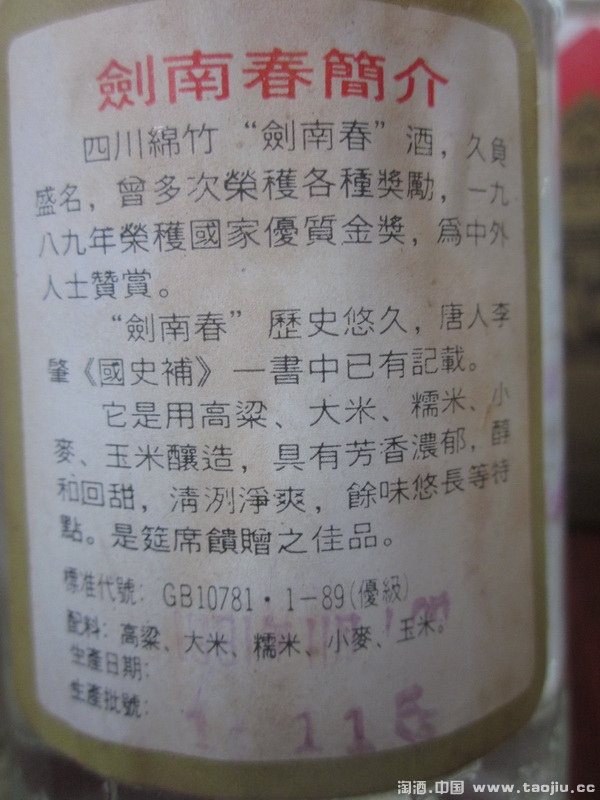 劍南春簡介
四川綿竹“劍南春”酒，久負
盛名，曾多次榮獲各種獎勵，一九
八九年榮獲國家優質金獎，爲中外
人士贊賞。
“劍南春”歷史悠久，唐人李
肇《國史補》一書中已有記載。
它是用高粱、大米、糯米、小
麥、玉米釀造，具有芳香濃郁，醇
和回甜，清冽淨爽，餘味悠長等特
點。是筵席饋贈之佳品。
標准代號：GB10781·1-89(優級)
配料：高粱、大米、糯米、小麥、玉米。
生產日期：
生產批號：
淘酒.中国 www.taojiu.cc